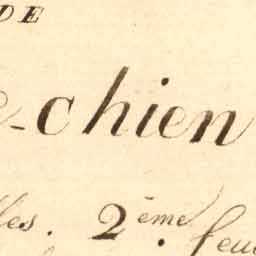 DE
-chien
les. 2ème feu